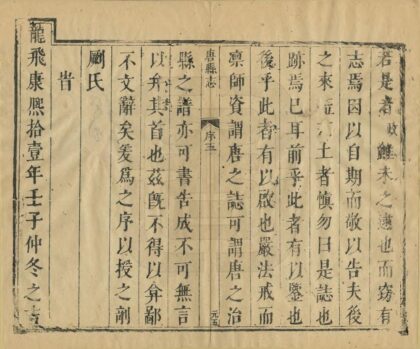 若是者鯉未之逮也而窃有
志焉因以自期而敬以告夫後
之來茲土者慎勿曰是誌也
跡焉已耳前乎此者有以鑒也
後乎此者有以啟也嚴法戒而
凜師資謂唐之誌可謂唐之治
唐縣志
序五
縣之譜亦可書告成不可無言
以弁其首也茲旣不得以弇鄙
不文辭矣爰爲之序以授之剞
劂氏
旹
龍飛康熙拾壹年壬子仲冬之吉